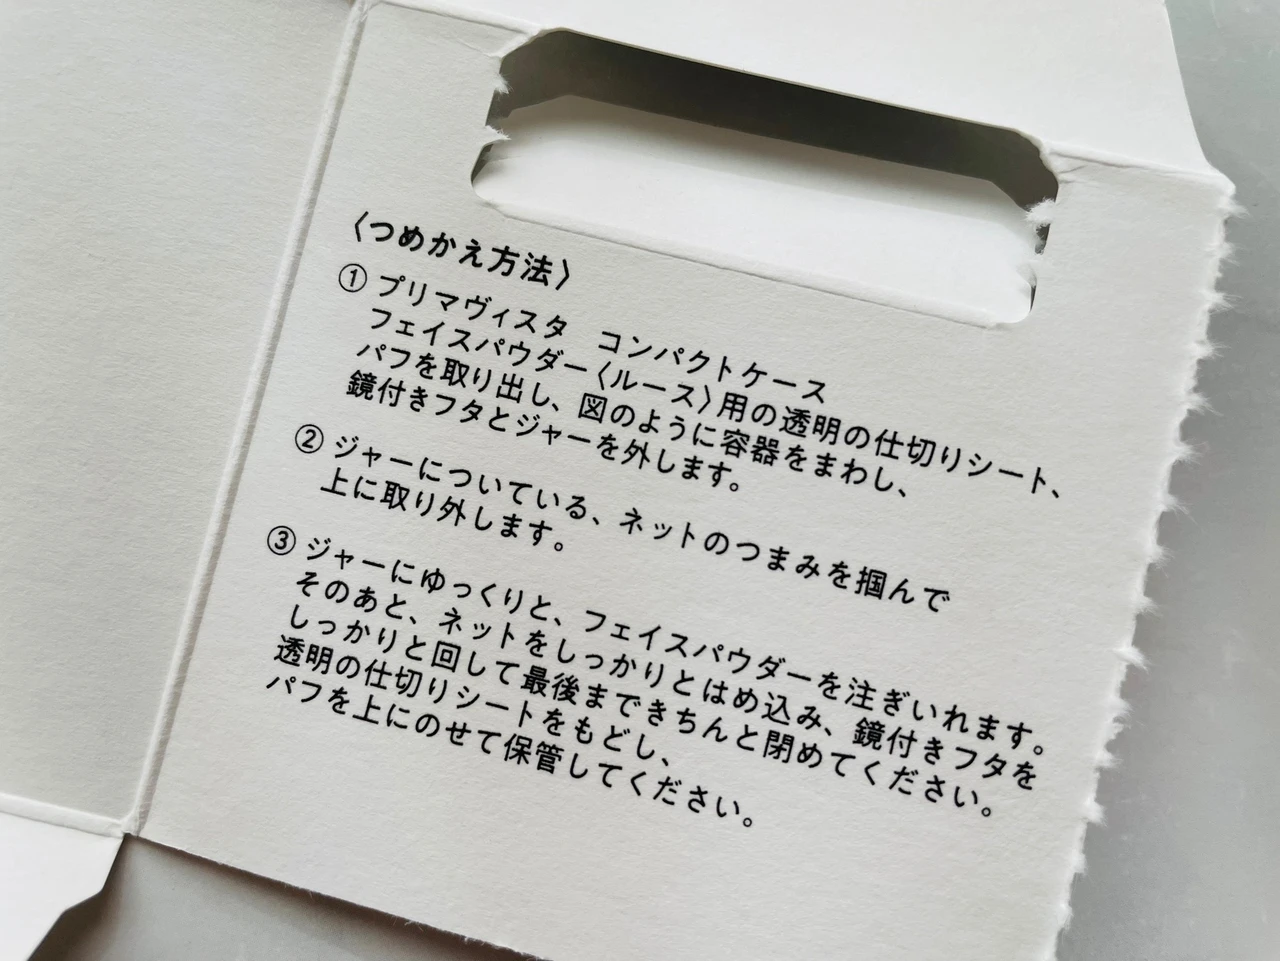 〈つめかえ方法〉
① プリマヴィスタ コンパクトケース
フェイスパウダー〈ルース〉用の透明の仕切りシート、
パフを取り出し、図のように容器をまわし、
鏡付きフタとジャーを外します。
② ジャーについている、ネットのつまみを掴んで
上に取り外します。
③ ジャーにゆっくりと、フェイスパウダーを注ぎいれます。
そのあと、ネットをしっかりとはめ込み、鏡付きフタを
しっかりと回して最後まできちんと閉めてください。
透明の仕切りシートをもどし、
パフを上にのせて保管してください。